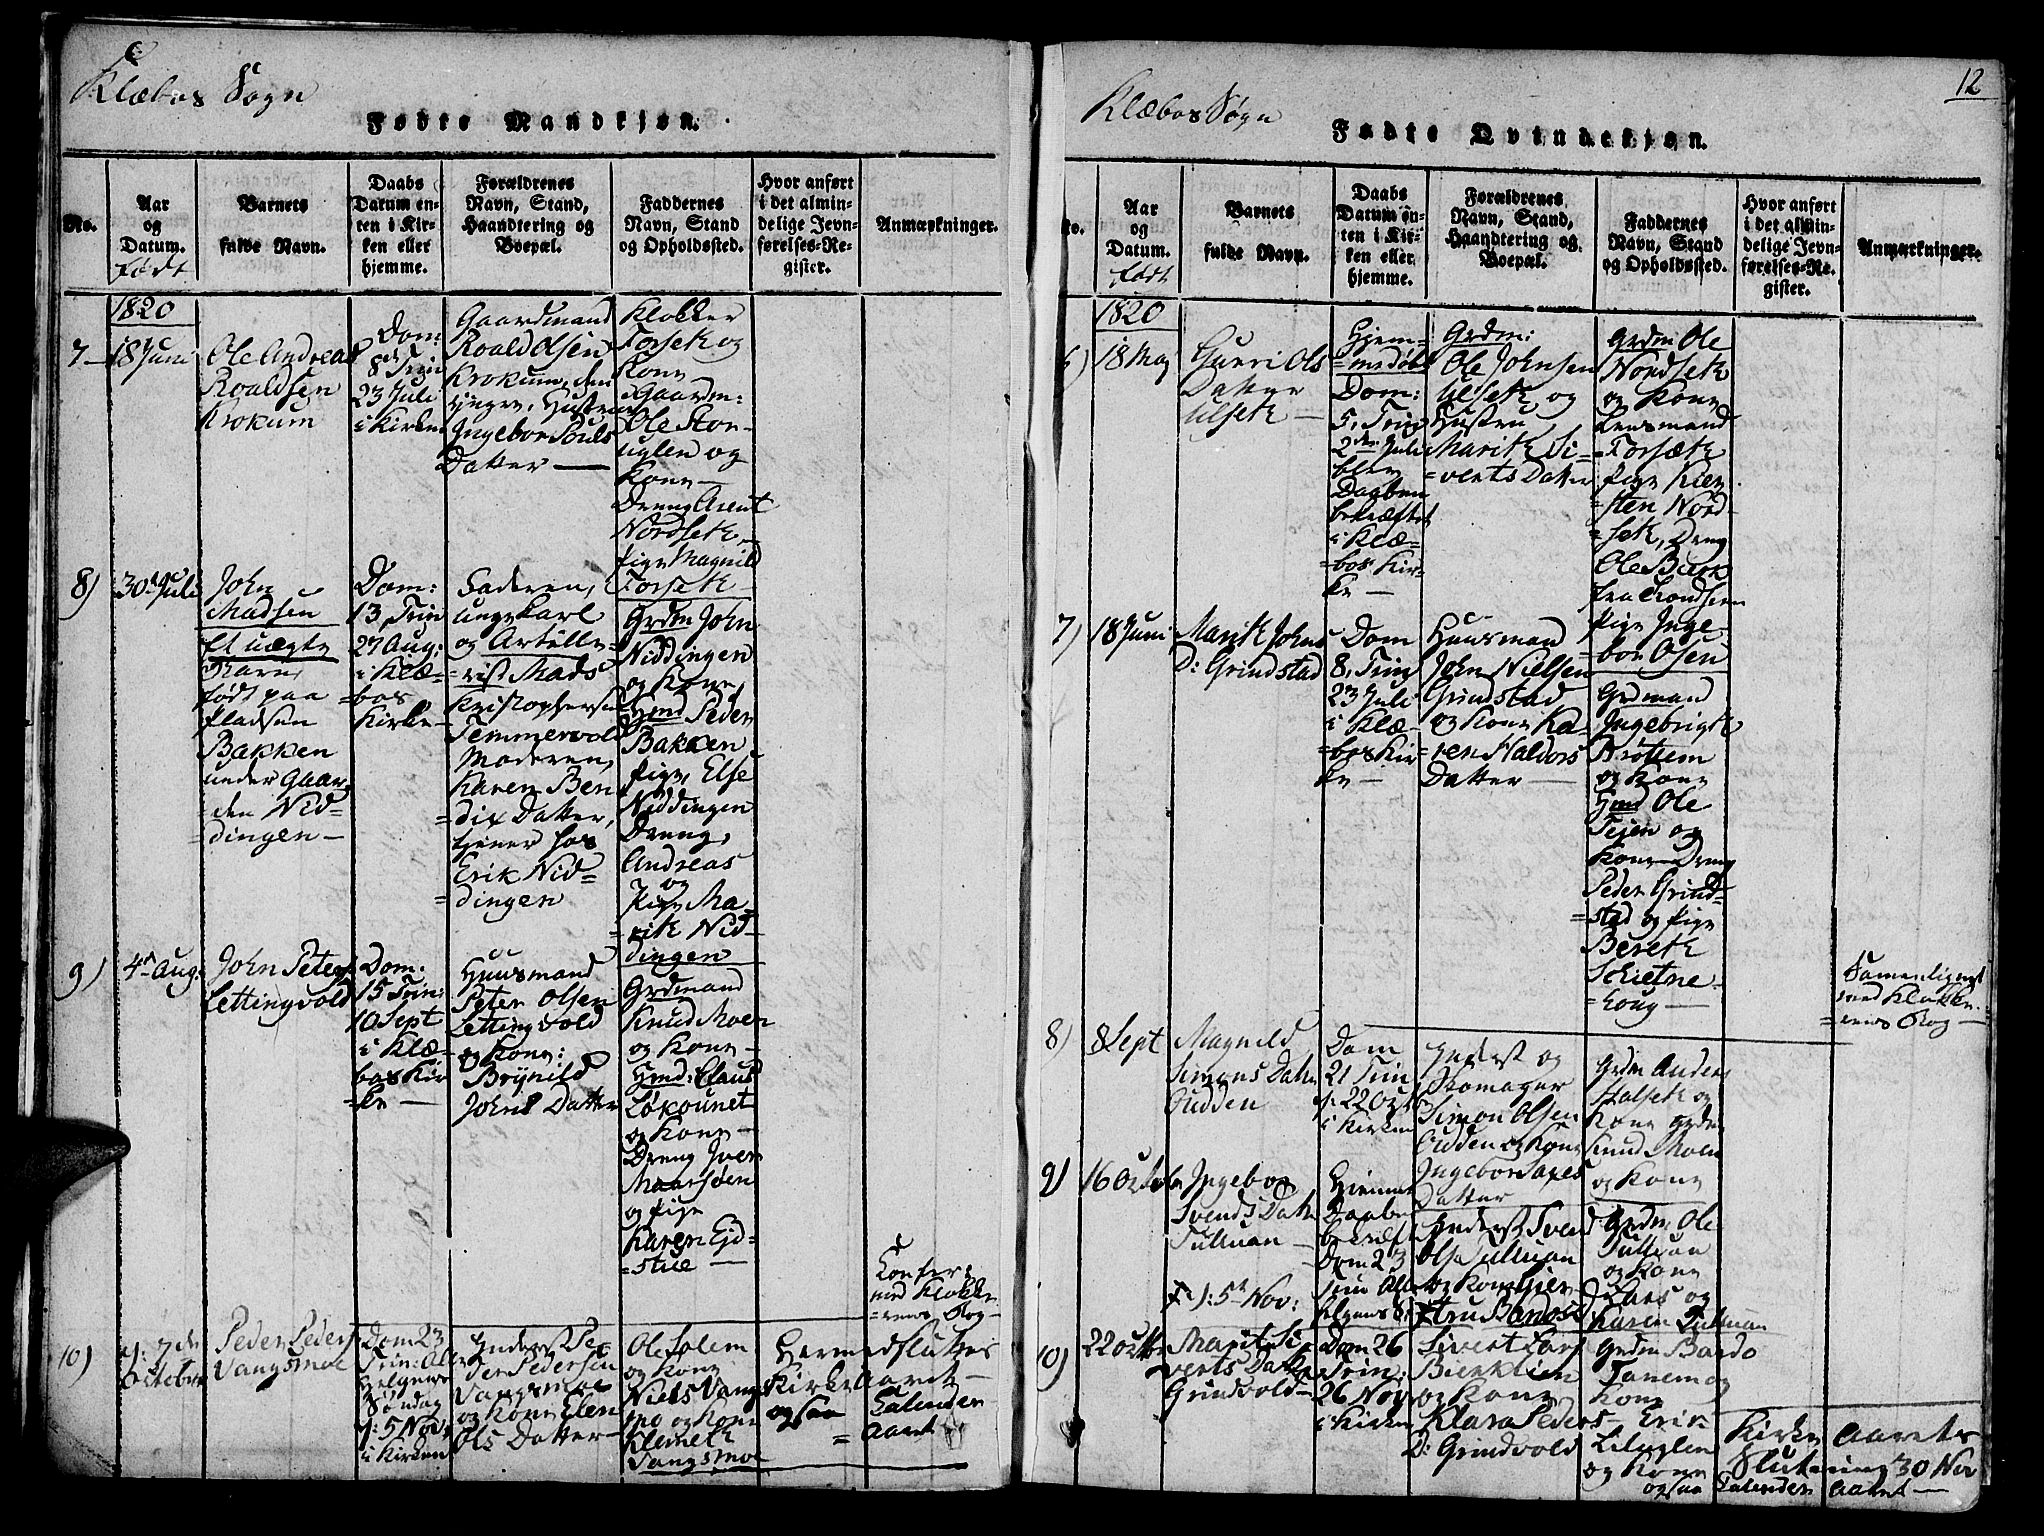 Klæboe Sogn
Fødte Mandkjøn.
No.
Aar
og
Datum.
født
Barnets
fulde Navn.
Daabs
Datum en-
ten i Kir-
ken eller
hjemme.
Forældrenes
Navn, Stand,
Haandtering og
Boepæl.
Faddernes
Navn, Stand
og Opholdssted.
Hvor anført
i det almin-
delige Jevn-
førelses-Re-
gister.
Anmærkninger.
1820
7
18 Juni
Ole Andreas
Roaldsen
Krokum
Dom:
8de Trin
23 Juli
i Kirken
Gaardmand
Roald Olsen
Krokum, den
yngre, Hustrue
Ingebor Pouls
Datter —
Klokker
Forsetk og
Kone
Gaardm:
Ole Stor-
uglen og
Kone —
Dreng Arent
Nordsetk,
Pige Magnild
Forsetk
8)
30 Juli
John
Madsen
Et uægte
Barn,
født paa
Pladsen
Bakken
under Gaar-
=den Nid-
dingen —
Dom:
13 Trin
27 Aug:
i Klæ-
=boe
Kirke —
Faderen,
ungekarl
og Artille-
=rist Mads
Kristophersen
Temmervold
Moderen,
Karen Ben
=dix Datter,
tjener hos
Erik Nid=
=dingen
Grdm John
Niddingen
og Kone,
Hmd Peder
Bakken
Pige, Else
Niddingen
Dreng,
Andreas
og
Pige Ma-
=ritk Nid=
dingen
9)
4 Aug:
John Peters
Lettingvold
Dom:
15 Trin:
10 Sept
i Klæ-
boe Kir
=ke —
Huusmand
Peter Olsen
Lettingvold
og Kone:
Brynild
Johns Datter
Grdmand
Knud Moen
og Kone —
Hmd: Claus
Løkounet
og Kone —
Dreng Iver
Maarsøen
og Pige
Karen Ejd=
=stue —
Confer:
med Klokke
=rens Bog —
10)
d: 7de
October
Peder Peders
Vangsmoe
Dom 23
Trin: Alle
Helgens
Søndag
d: 5 Nov:
i Kirken
Inderst Pe
der Pedersen
Vangsmoe
og Kone Elen
Ols Datter —
Ole Solem
og Kone
Niels Vangs
mo og Kone
Klemetk
Vangsmoe
Hermed sluttes
Kirke Aaret —
ogsaa Calender
= Aaret
12
Klæboe Sogn
Fødte Qvindekjøn.
No.
Aar
og
Datum.
født
Barnets
fulde Navn.
Daabs
Datum en-
ten i Kir-
ken eller
hjemme.
Forældrenes
Navn, Stand,
Haandtering og
Boepæl.
Faddernes
Navn, Stand
og Opholdssted.
Hvor anført
i det almin-
delige Jevn-
førelses-Re-
gister.
Anmærkninger.
1820
6)
18 Maj
Gurri Ols
Datter
Ulsetk —
Hjem-
=medøbt
Dom:
5, Trin
2den Juli
blev
Daaben
bekræftet
i Klæ-
boe Kir-
ke —
Grdm:
Ole Johnsen
Ulsetk og
Hustru
Maritk Si-
=verts Datter
Grdm Ole
Nordsetk
og Kone
Lensmand
Forsætk
Pige Kier
=sten Nord-
=setk, Dreng
Ole Burk
fra Trondhiem
Pige Inge-
bor Osen
7)
18 Juni
Maritk Johns
D: Grindstad
Dom
8, Trin
23 Juli
i Klæ-
=boe Kir-
ke —
Huusmand
John Nielsen
Grindstad
og Kone Ka-
=ren Haldors
Datter —
Grdmand
Ingebrigtk
Brøttem
og Kone
Hmd Ole
Tejen og
Kone — Dreng
Peder Grind-
=stad og Pige
Beretk
Skietne-
=houg —
Samenlignet
med Klokke-
=rens Bog —
8)
8 Sept
Magnild
Simons Datter
Gudden
Dom
21 Trin
d: 22 Oct
i Kirken
Inderst og
Skomager
Simon Olsen
Gudden og Kone
Ingebor Larses
Datter
Grdm Anders
Halsetk og
Kone Grdm
Knud Moen
og Kone
9)
16 October
Ingebor
Svends Datter
Tulluan —
d: 5te Nov:
Hjemme
Daaben
bekræft
Dom 23
Trin Alle
Helgens S:
Inderst Svend
Ols Tulluan
og Kone
Grdm Ole
Tulluan
og Kone
Lars og
Karen Tulluan
10)
22 October
Marit Si-
verts Datter
Grindvold —
Dom 26
Trin:
26 Nov
i Kirken
Sivert Lars
Bierklien
og Kone
Klara Peders
D: Grindvold
Grdm Bardo
Tanem og
Kone
— Erik
Liluglen
og Kone
Kirke Aarets
Slutning 30 Nov
ogsaa Calender Aaret —